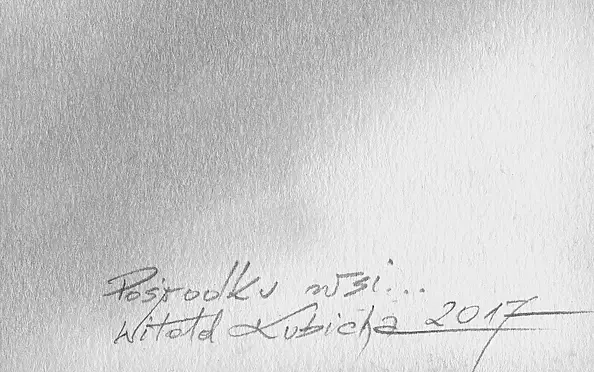 Pośrodku wsi...
Witold Kubicha 2017